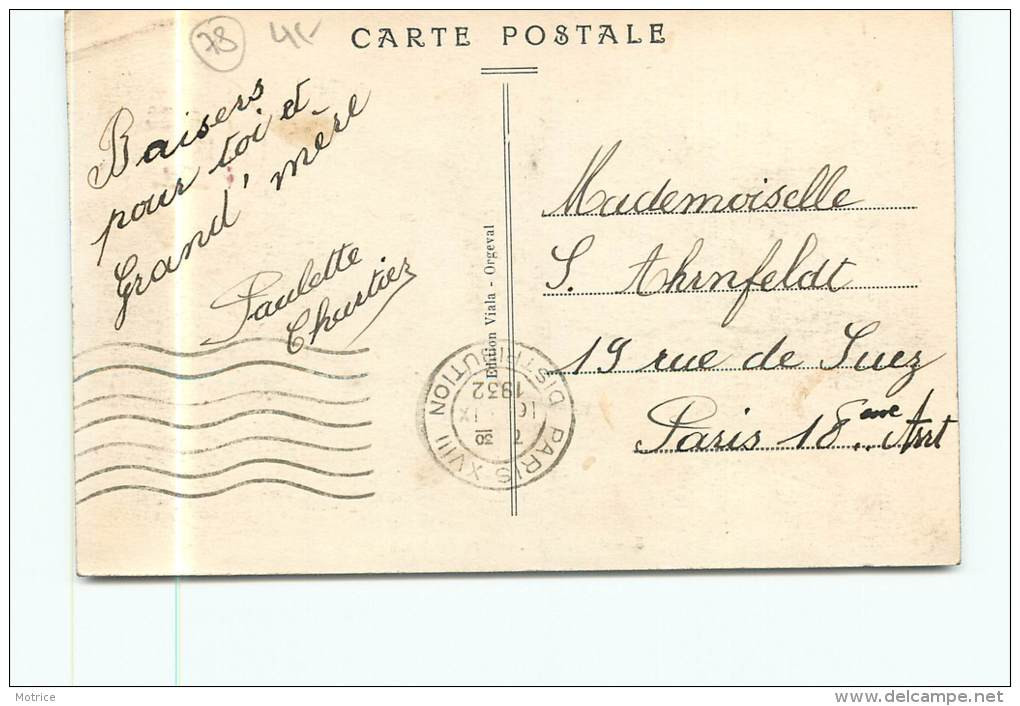 78
4,-
CARTE POSTALE
Baisers
pour toi et
Grand'mère
Paulette
Chartier
Edition Viala - Orgeval
Mademoiselle
S. Ahrnfeldt
19 rue de Suez
Paris 18.ème Arrt
PARIS XVIII
DISTRIBUTION
1932
Motrice
delcampe.net